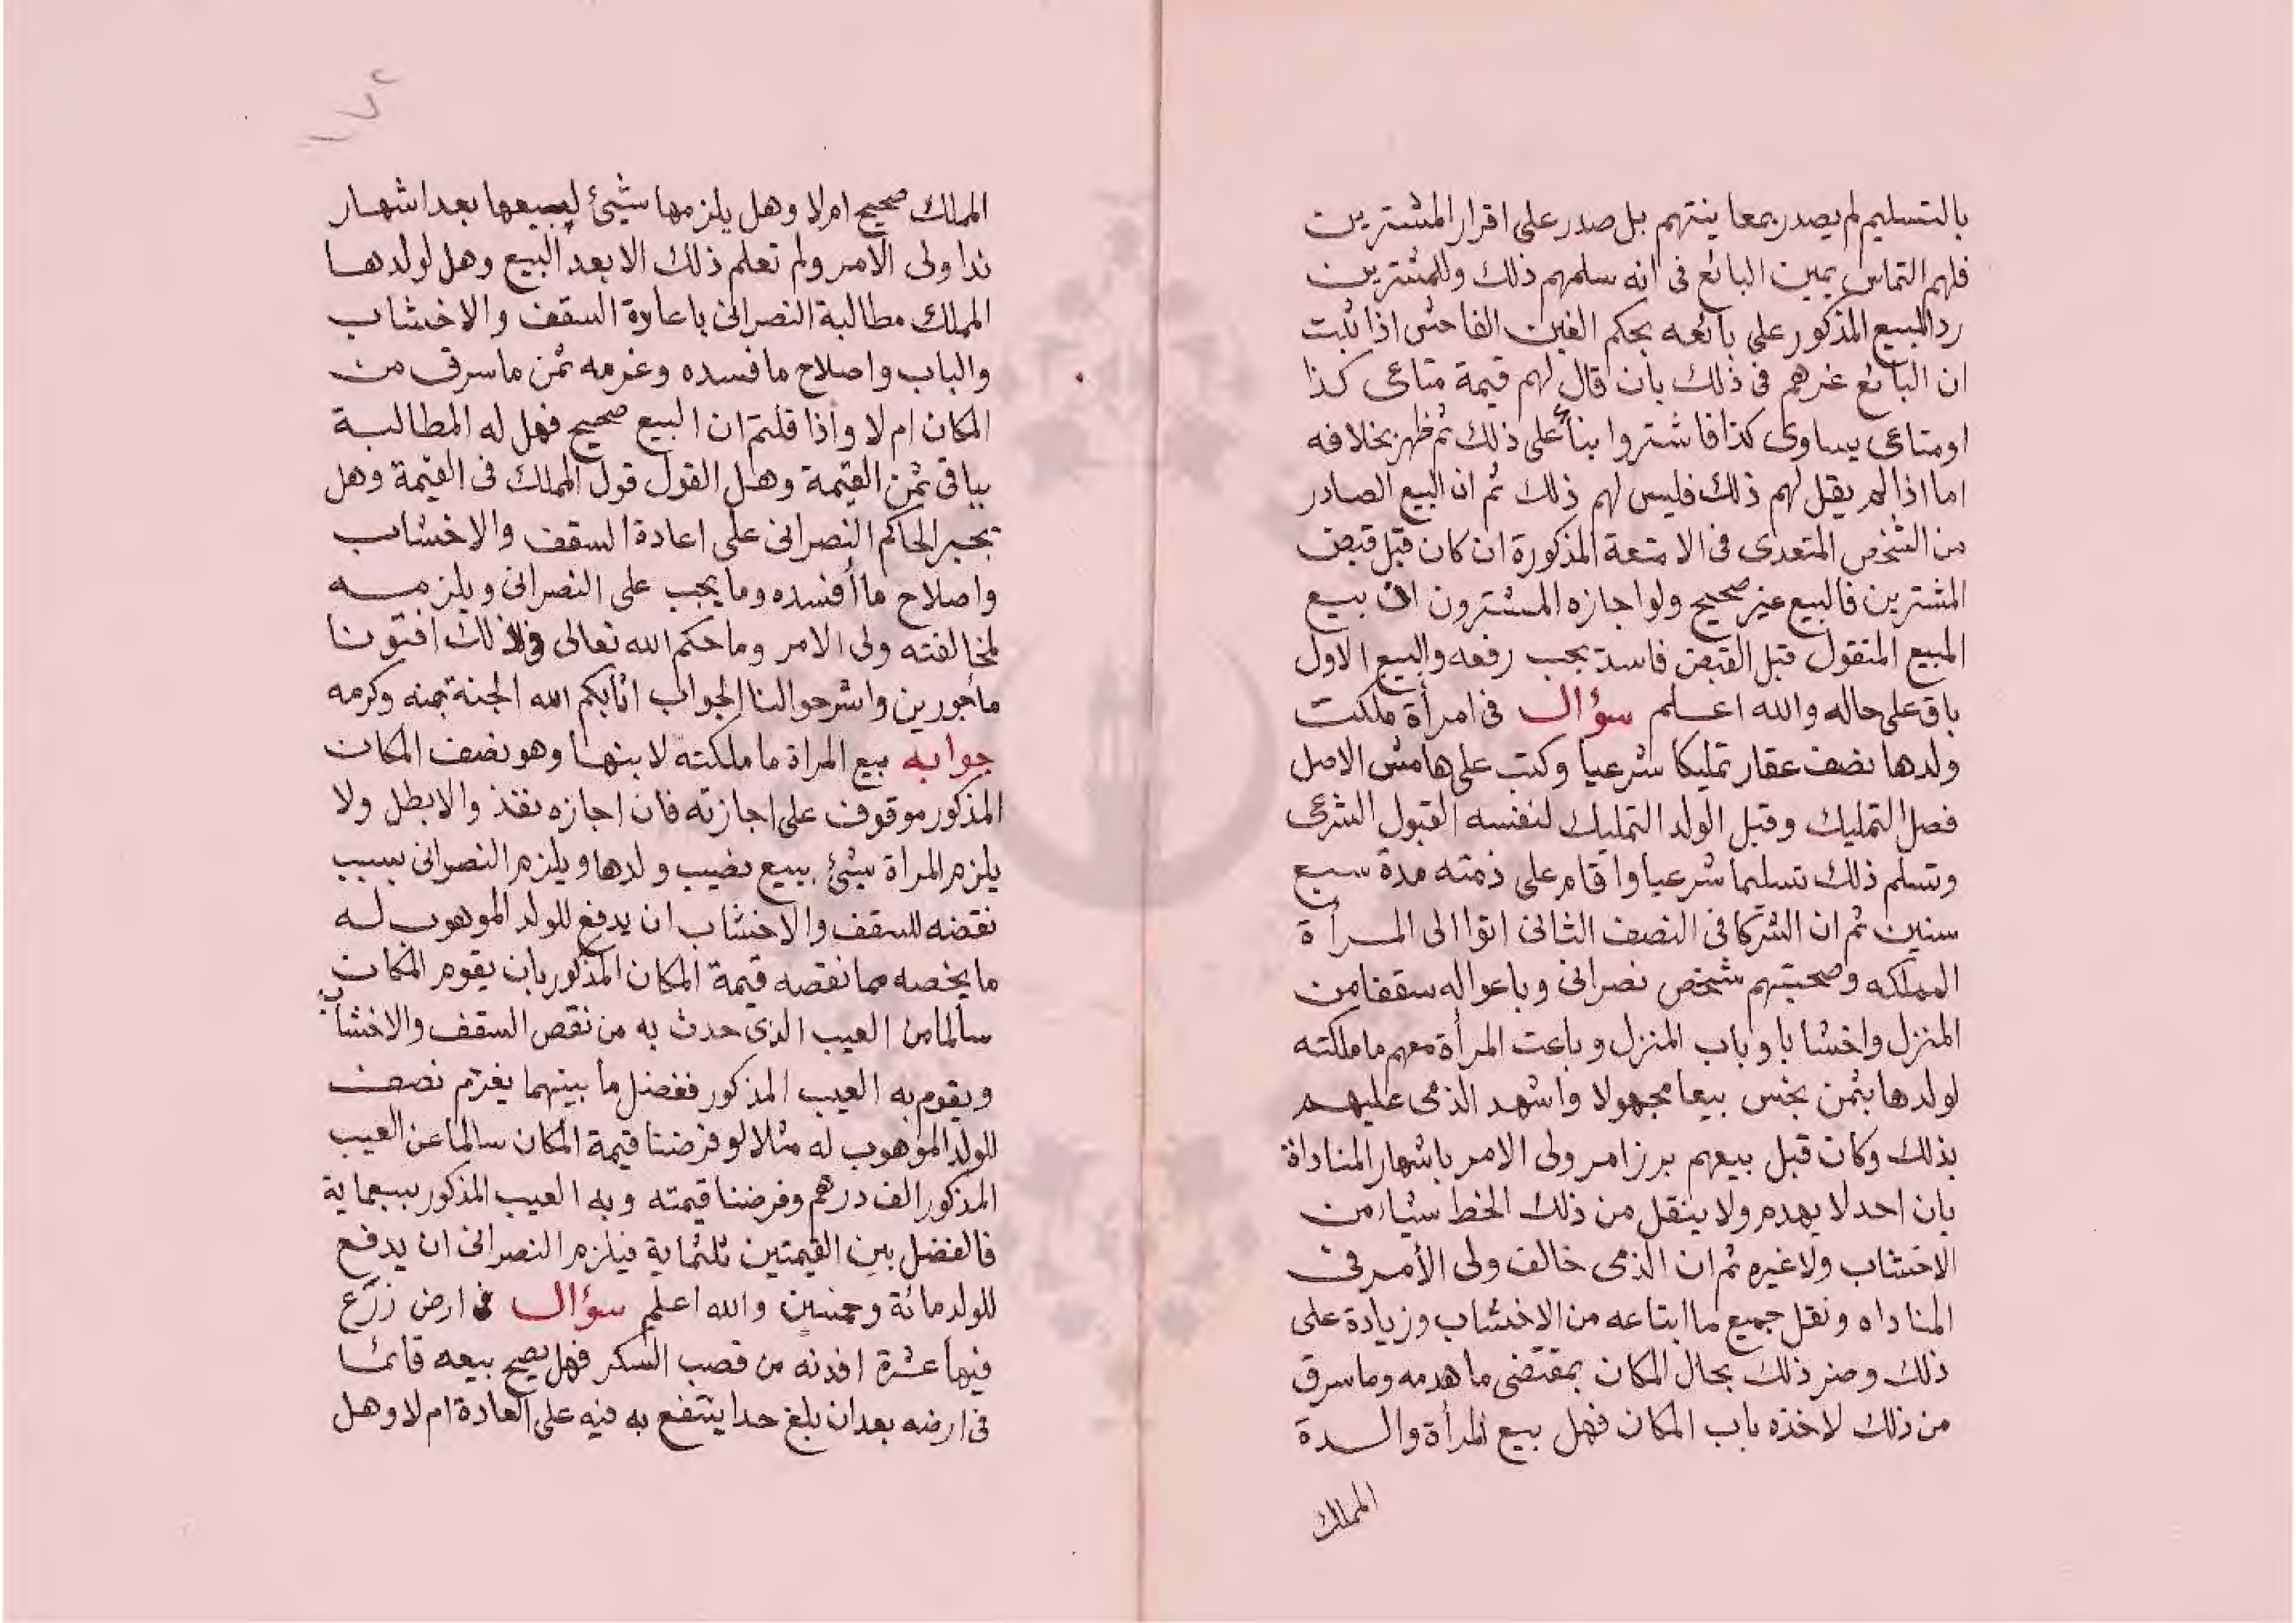 بالتسليم لم يصدر بمعاينتهم بل صدر على اقرار المشترين
فلهم التماس يمين البائع فى انه سلمهم ذلك وللمشترين
رد المبيع المذكور على بائعه بحكم الغبن الفاحش اذا ثبت
ان البائع غرهم فى ذلك بان قال لهم قيمة متاعى كذا
او متاعى يساوى كذا فاشتروا بناء على ذلك ثم ظهر بخلافه
اما اذا لم يقل لهم ذلك فليس لهم ذلك ثم ان البيع الصادر
من الشخص المتعدى فى الامتعة المذكورة ان كان قبل قبض
المشترين فالبيع غير صحيح ولو اجازه المشترون لان بيع
المبيع المنقول قبل القبض فاسد يجب رفعه والبيع الاول
باق على حاله والله اعلم سؤال فى امرأة ملكت
ولدها نصف عقار تمليكا شرعيا وكتب على هامش الاصل
فصل التمليك وقبل الولد التمليك لنفسه القبول الشرعى
وتسلم ذلك تسليما شرعيا واقام على ذمته مدة سبع
سنين ثم ان الشركا فى النصف الثانى اتوا الى المرأة
المملكه وصحبتهم شخص نصرانى وباعوا له سقفا من
المنزل واخشابا وباب المنزل وباعت المرأة معهم ما ملكته
لولدها بثمن بخس بيعا مجهولا واشهد الذمى عليهم
بذلك وكان قبل بيعهم برز امر ولى الامر باشهار المناداة
بان احد لا يهدم ولا ينقل من ذلك الخط شيئا من
الاخشاب ولا غيره ثم ان الذمى خالف ولى الأمر فى
المناداه ونقل جميع ما ابتاعه من الاخشاب وزيادة على
ذلك وضر ذلك بحال المكان بمقتضى ما هدمه وما سرق
من ذلك لاخذه باب المكان فهل بيع المرأة والدة
المملك
١٧٢
المملك صحيح ام لا وهل يلزمها شيئ لبيعها بعد اشهار
ندا ولى الأمر ولم تعلم ذلك الا بعد البيع وهل لولدها
المملك مطالبة النصرانى باعادة السقف والاخشاب
والباب واصلاح ما فسده وغرمه ثمن ما سرق من
المكان ام لا وأذا قلتم ان البيع صحيح فهل له المطالبة
بباقى ثمن القيمة وهل القول قول المملك فى القيمة وهل
يجبر الحاكم النصرانى على اعادة السقف والاخشاب
واصلاح ما أفسده وما يجب على النصرانى ويلزمه
لمخالفته ولى الامر وما حكم الله تعالى فى ذلك افتونا
مأجورين واشرحوا لنا الجواب اثابكم الله الجنة بمنه وكرمه
جوابه بيع المراة ما ملكته لابنها وهو نصف المكان
المذكور موقوف على اجازته فان اجازه نفذ والا بطل ولا
يلزم المراة شيئ ببيع نصيب ولدها ويلزم النصرانى بسبب
نقضه للسقف والاخشاب ان يدفع للولد الموهوب له
ما يخصه مما نقصه قيمة المكان المذكور بان يقوم المكان
سالما من العيب الذى حدث به من نقص السقف والاخشاب
ويقوم به العيب المذكور ففضل ما بينهما يغرم نصف
للولد الموهوب له مثلا لو فرضنا قيمة المكان سالما عن العيب
المذكور الف درهم وفرضنا قيمته وبه العيب المذكور بسبعماية
فالفضل بين القيمتين ثلثماية فيلزم النصرانى ان يدفع
للولد مائة وخمسين والله اعلم سؤال فى ارض زرع
فيها عشرة افدنه من قصب السكر فهل يصح بيعه قائما
فى ارضه بعد ان بلغ حدا ينتفع به فيه على العادة ام لا وهل